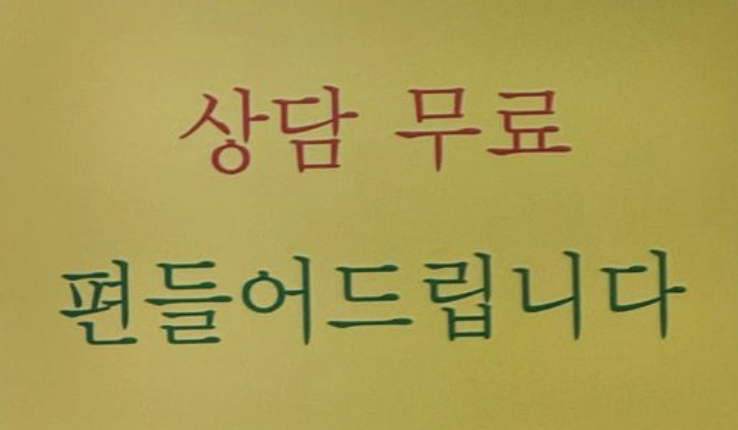 상담 무료
편들어드립니다